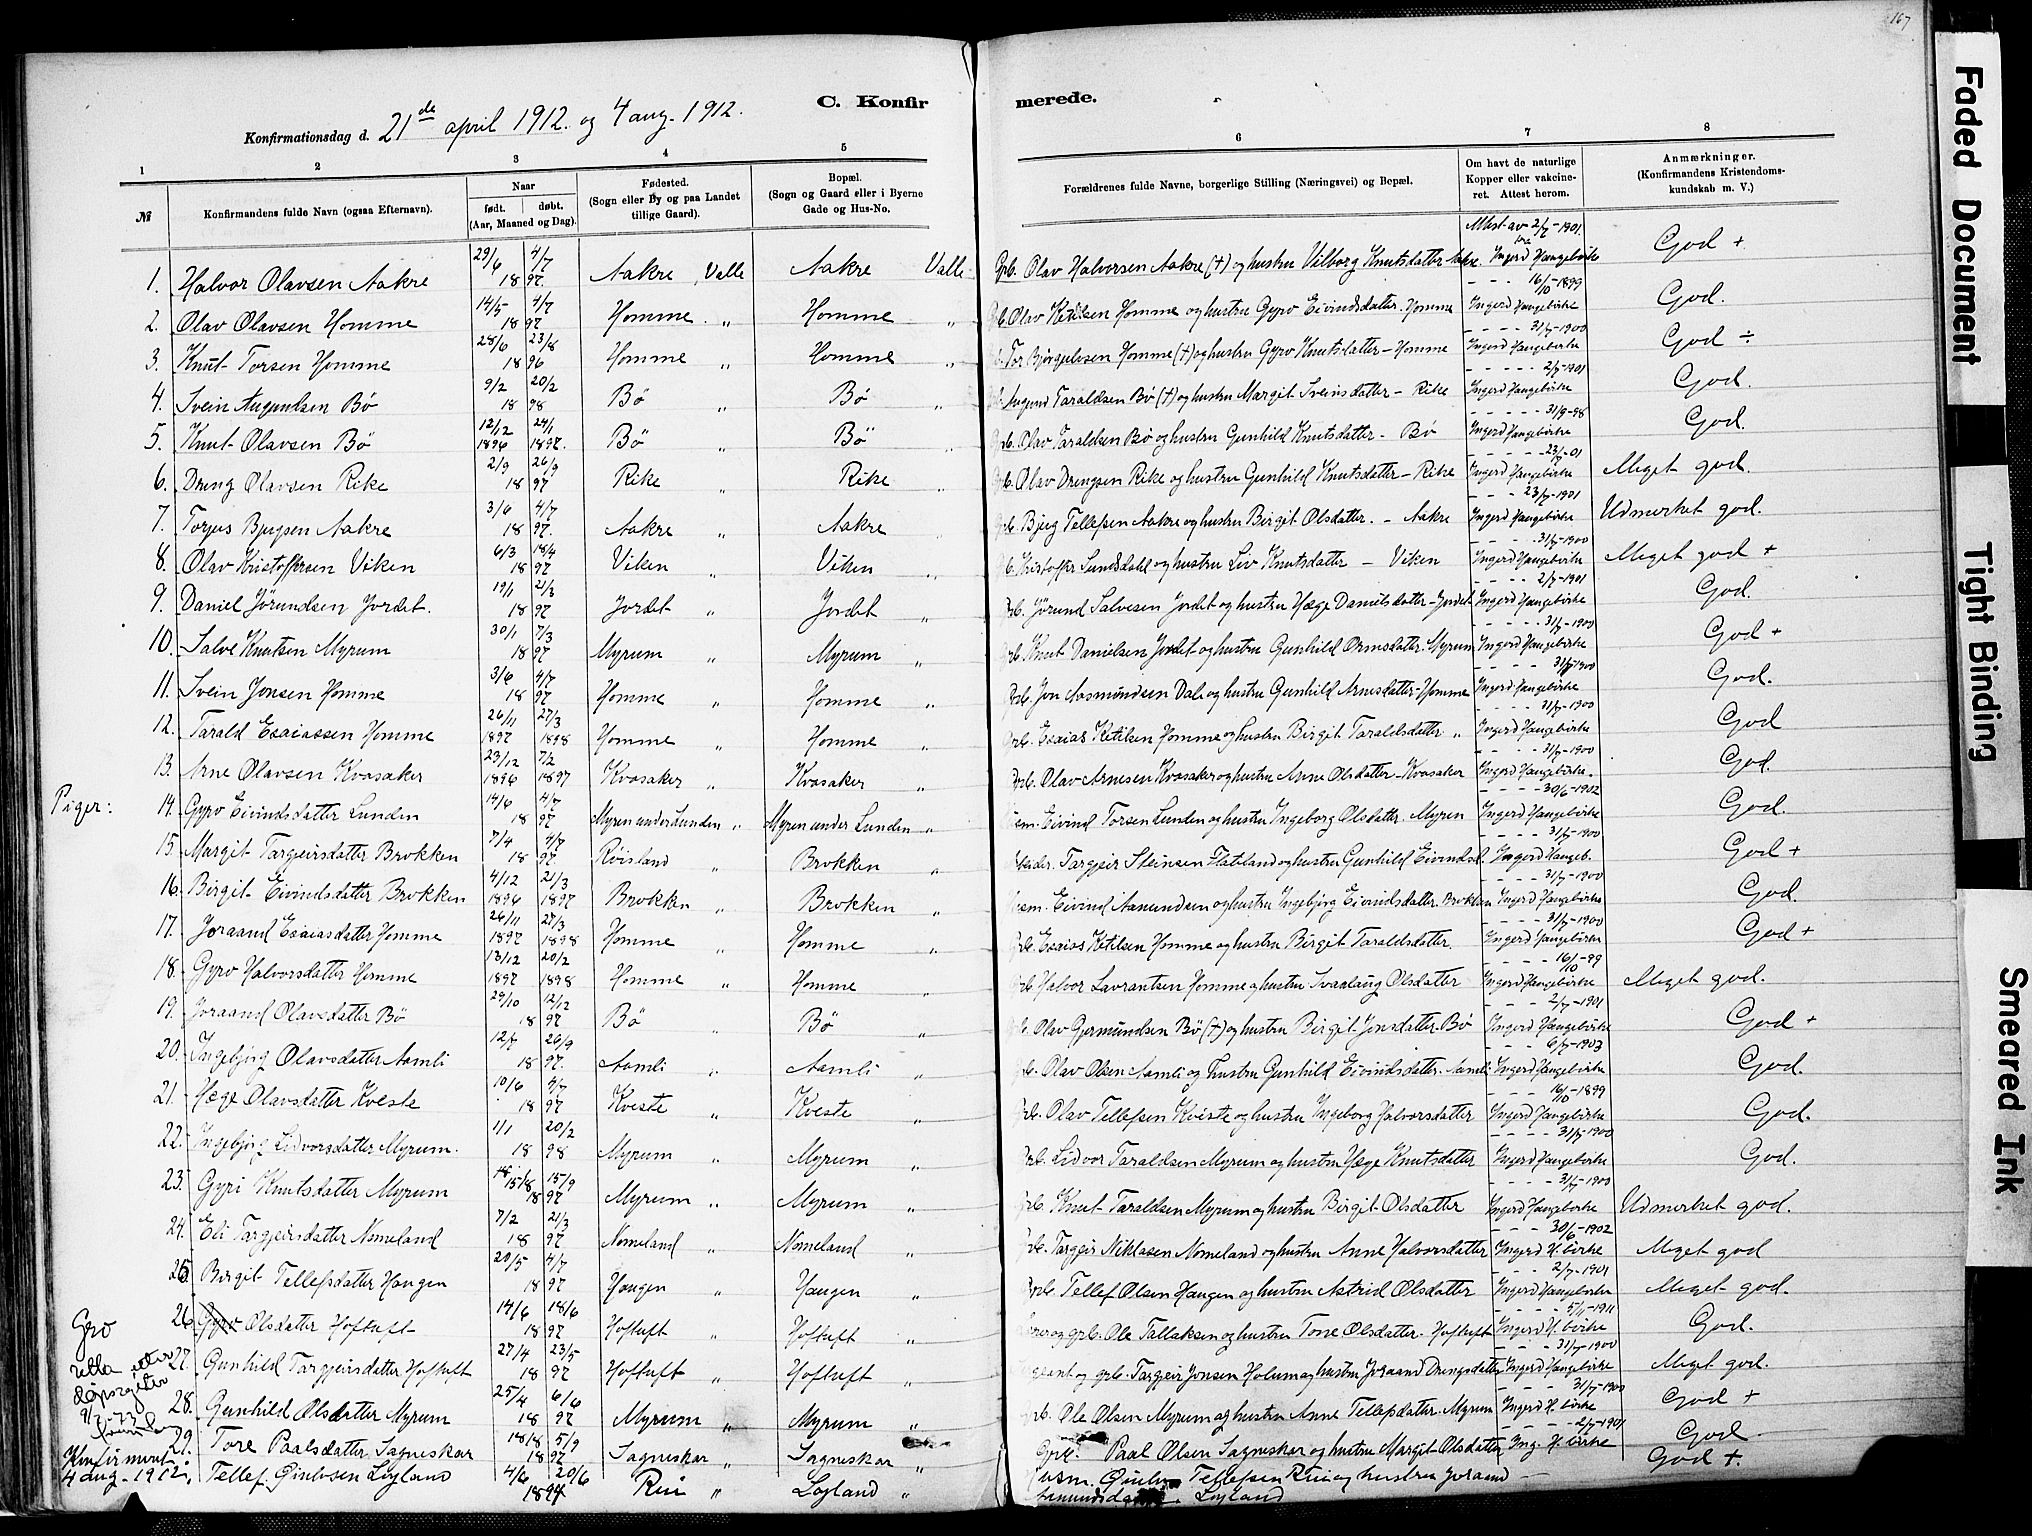 167
Faded Document
Tight Binding
Smeared Ink
C. Konfirmerede.
Konfirmationsdag d. 21de april 1912. og 4 aug. 1912.
1 2 3 4 5 6 7 8
№ Konfirmandens fulde Navn (ogsaa Efternavn). Naar født. døbt. (Aar, Maaned og Dag). Fødested. (Sogn eller By og paa Landet tillige Gaard). Bopæl. (Sogn og Gaard eller i Byerne Gade og Hus-No. Forældrenes fulde Navne, borgerlige Stilling (Næringsvei) og Bopæl. Om havt de naturlige Kopper eller vakcineret. Attest herom. Anmærkninger. (Konfirmandens Kristendomskundskab m. V.)
1. Halvor Olavsen Aakre 29/6 4/7 1897. Aakre, Valle Aakre Valle Grb. Olav Halvorsen Aakre (+) og hustru Vilborg Knutsdatter Aakre. Attest av 2/7-1901 fra Ingerd Haugebirke God +
2. Olav Olavsen Homme 14/5 4/7 1897 Homme „ Homme „ Olav Ketilsen Homme og hustru Gyro Eivindsdatter. Homme - - - 16/10-1899 Ingerd Haugebirke God.
3. Knut Torsen Homme 28/6 23/8 1896 Homme „ Homme „ Tor Bjørgulvsen Homme (+) og hustru Gyro Knutsdatter - Homme - - - 31/7-1900 Ingerd Haugebirke God ÷
4. Svein Augundsen Bø 9/2 20/2 1898 Bø „ Bø „ Augund Taraldsen Bø (+) og hustru Margit Sveinsdatter - Rike - - - 2/7-1901 Ingerd Haugebirke God.
5. Knut Olavsen Bø 12/12 1896 24/1 1897. Bø „ Bø „ Grb. Olav Taraldsen Bø og hustru Gunhild Knutsdatter - Bø - - - 31/9-98 Ingerd Haugebirke God.
6. Dreng Olavsen Rike 2/9 26/9 1897 Rike „ Rike „ Grb. Olav Drengsen Rike og hustru Gunhild Knutsdatter - Rike - - - 23/7-01 Ingerd Haugebirke Meget god.
7. Torjus Bjugsen Aakre 3/6 4/7 1897. Aakre „ Aakre „ Grb. Bjug Tellefsen Aakre og hustru Birgit Olsdatter. - Aakre - - - 23/7-1901 Ingerd Haugebirke Udmerket god.
8. Olav Kristoffersen Viken 6/3 18/4 1897 Viken „ Viken „ Kristoffer Sundsdahl og hustru Liv Knutsdatter - Viken - - - 31/7-1900 Ingerd Haugebirke Meget god +
9. Daniel Jörundsen Jordet. 19/1 21/3 1897 Jordet „ Jordet „ Grb. Jörund Salvesen Jordet og hustru Hæge Danielsdatter - Jordet - - - 2/7-1901 Ingerd Haugebirke God.
10. Salve Knutsen Myrum 30/1 7/3 1897 Myrum „ Myrum „ Grb. Knut Danielsen Jordet og hustru Gunhild Ormsdatter. Myrum - - - 31/7-1900 Ingerd Haugebirke God +
11. Svein Jonsen Homme 3/6 4/7 1897 Homme „ Homme „ Grb. Jon Aasmundsen Dale og hustru Gunhild Arnesdatter - Homme 31/7-1900 Ingerd Haugebirke God.
12. Tarald Esaiassen Homme 26/11 1897 27/3 1898 Homme „ Homme „ Grb. Esaias Ketilsen Homme og hustru Birgit Taraldsdatter „ 31/7-1900 Ingerd Haugebirke God
13. Arne Olavsen Kvasaker 23/12 1896 7/2 1897 Kvasaker „ Kvasaker „ Grb. Olav Arnesen Kvasaker og hustru Anne Olsdatter - Kvasaker - - - 31/7-1900 Ingerd Haugebirke. God.
Piger:
14. Gyro Eivindsdatter Lunden 14/6 4/7 1897 Myren under Lunden „ Myren under Lunden „ Husm. Eivind Torsen Lunden og hustru Ingeborg Olsdatter. Myren - - - 30/6-1902 Ingerd Haugebirke God.
15. Margit Targjeirsdatter Brokken 7/4 4/7 1897 Röisland „ Brokken „ Targjeir Steinsen Flateland og hustru Gunhild Eivindsd. - - - 31/7-1900 Ingerd Haugeb. God +
16. Birgit Eivindsdatter Brokken 4/12 1896 21/3 1897 Brokken „ Brokken „ Husm. Eivind Aamundsen og hustru Ingebjörg Eivindsdatter. Brokken - - - 31/7-1900 Ingerd Haugebirke God.
17. Joraand Esaiasdatter Homme 26/11 1897 27/3 1898 Homme „ Homme „ Grb. Esaias Ketilsen Homme og hustru Birgit Taraldsdatter. - - - 31/7-1900 Ingerd Haugebirke God +
18. Gyro Halvorsdatter Homme 13/12 1897 20/2 1898 Homme „ Homme „ Grb. Halvor Lavrantsen Homme og hustru Svaalaug Olsdatter 16/10-99 Ingerd Haugebirke Meget god.
19. Joraand Olavsdatter Bø 29/10 12/12 1897 Bø „ Bø „ Olav Gjermundsen Bø (+) og hustru Birgit Jonsdatter. Bø - - - 2/7-1901 Ingerd Haugebirke God +
20. Ingebjörg Olavsdatter Aamli 12/7 26/9 1897. Aamli „ Aamli „ Grb. Olav Olsen Aamli og hustru Gunhild Eivindsdatter. Aamli - - - 6/7-1903 Ingerd Haugebirke God.
21. Hæge Olavsdatter Kveste 10/6 4/7 1897 Kveste „ Kveste „ Grb. Olav Tellefsen Kveste og hustru Ingeborg Halvorsdatter 16/10-1899 Ingerd Haugebirke God.
22. Ingebjörg Lidvorsdatter Myrum. 1/1 20/2 1898 Myrum „ Myrum „ Grb. Lidvor Taraldsen Myrum og hustru Hæge Knutsdatter - - - 31/7-1900 Ingerd Haugebirke God.
23. Gyri Knutsdatter Myrum 15/8 15/9 1897 Myrum „ Myrum „ Grb. Knut Taraldsen Myrum og hustru Birgit Olsdatter - - - 31/7-1900 Ingerd Haugebirke Udmerket god.
24. Eli Targjeirsdatter Nomeland 7/2 21/3 1897 Nomeland „ Nomeland „ Grb. Targjeir Niklasen Nomeland og hustru Anne Halvorsdatter - - - 30/6-1902 Ingerd H. birke Meget god
25. Birgit Tellefsdatter Haugen 20/5 4/7 1897 Haugen „ Haugen „ Grb. Tellef Olsen Haugen og hustru Astrid Olsdatter 2/7-1901 Ingerd Haugebirke Meget god.
26. Gyro Olsdatter Hoftuft 14/6 18/6 1897 Hoftuft „ Hoftuft „ Lærer og grb. Ole Tallaksen og hustru Tone Olsdatter. Hoftuft - - - 5/1-1911 Ingerd H. birke God.
Gro
retta etter dåpsseter 9/7-73
27. Gunhild Targjeirsdatter Hoftuft 27/4 23/5 1897 Hoftuft „ Hoftuft „ og grb. Targjeir Jonsen Holum og hustru Joraand Drengsdatter - - - 31/7-1900 Ingerd Haugebirke Meget god.
28. Gunhild Olsdatter Myrum 25/4 6/6 1897 Myrum „ Myrum „ Grb. Ole Olsen Myrum og hustru Anne Tellefsdatter. Myrum - - - 31/7-1900 Ingerd H. birke God +
29. Tore Paalsdatter Sagneskar 18/8 5/9 1897 Sagneskar „ Sagneskar „ Grb. Paal Olsen Sagneskar og hustru Margit Olsdatter - - - 2/7-1901 Ing. H. birke God
Konfirmert 4 aug. 1912:
Tellef Løyland 4/6 20/6 1897 „ Løyland „ Husm. Tellefsen og hustru Joraand Aamundsdatter Løyland - God +.